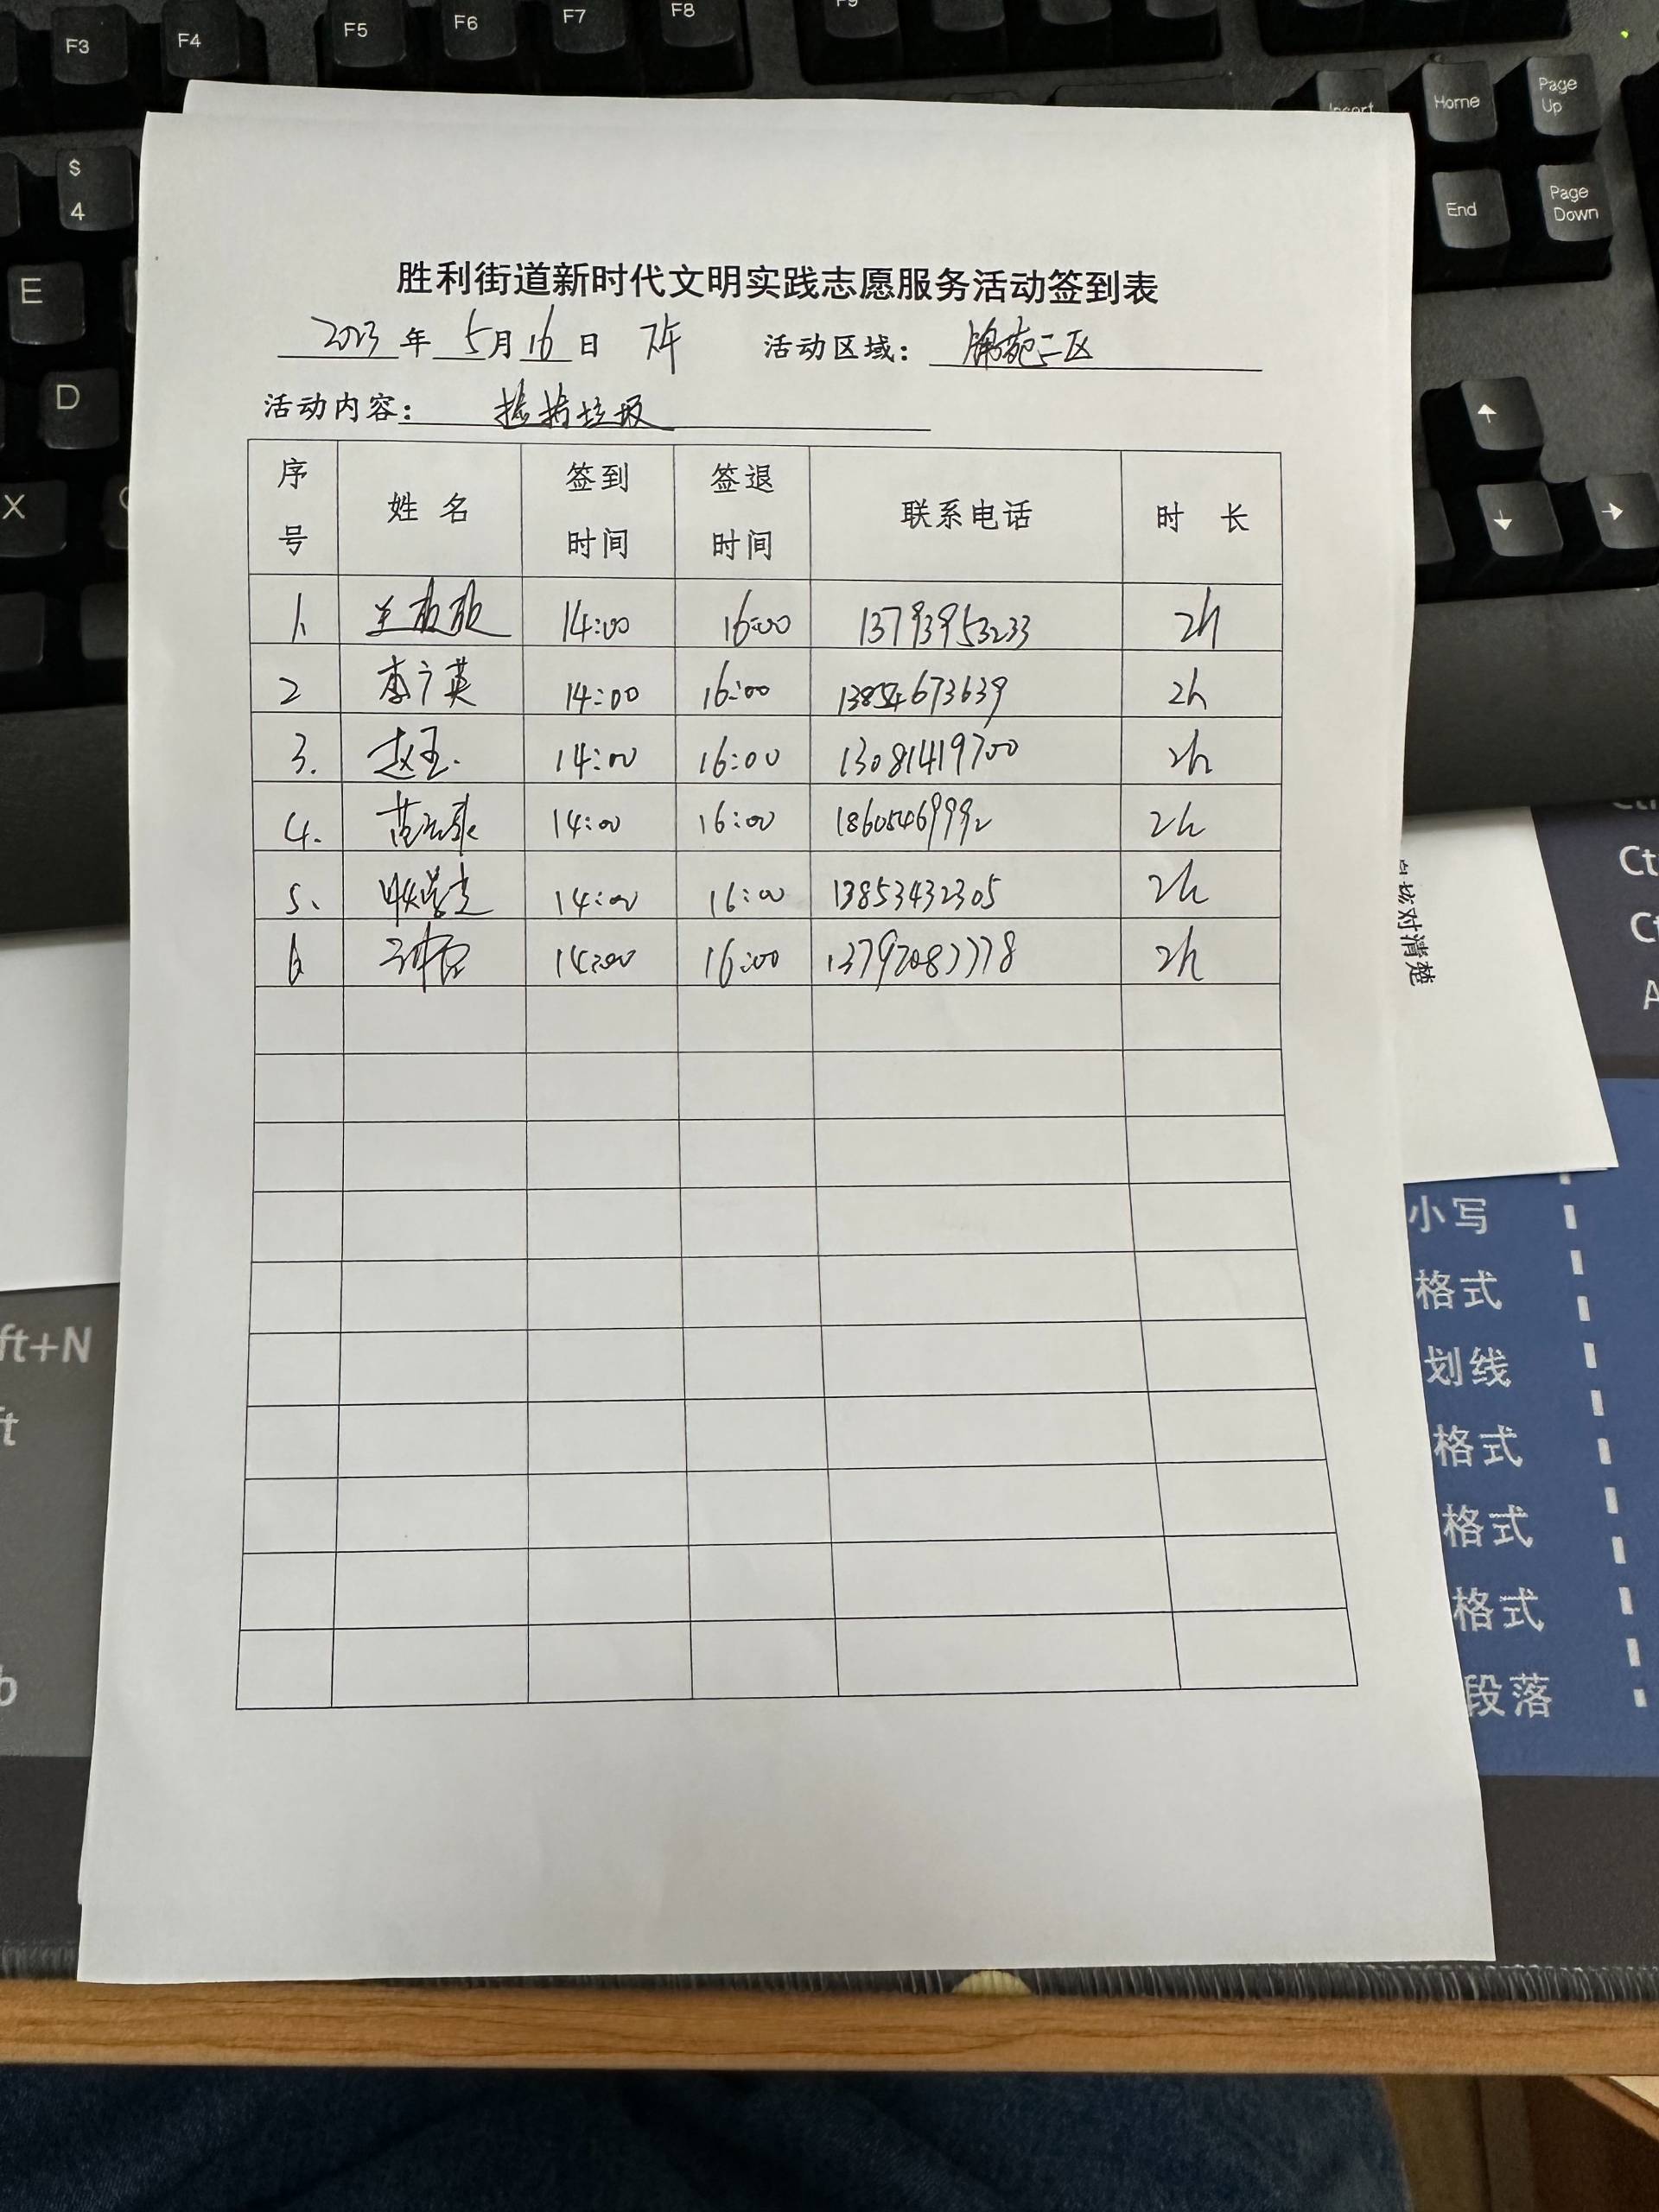 F3 F4 F5 F6 F7 F8 F9
Insert Home Page Up
$ 4
End Page Down
E
D
X
胜利街道新时代文明实践志愿服务活动签到表
2023 年 5月16 日 下午 活动区域: 锦苑二区
活动内容: 捡拾垃圾
序号 姓名 签到时间 签退时间 联系电话 时长
1. 14:00 16:00 13793953233 2h
2 李广英 14:00 16:00 13854673639 2h
3. 赵玉 14:00 16:00 13081419700 2h
4. 14:00 16:00 18605469992 2h
5. 14:00 16:00 13853432305 2h
6 14:00 16:00 2h
对清楚
小写
格式
ft+N
划线
格式
格式
格式
段落